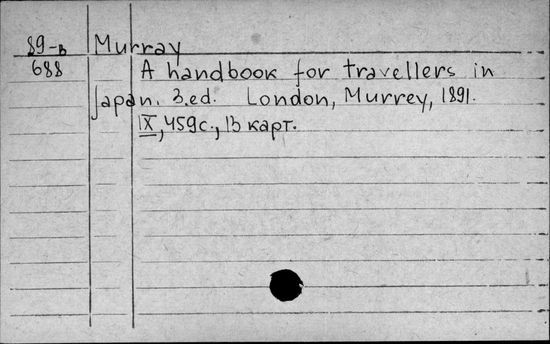 89-в Murray
688 A handbook for travellers in
Japan. 3.ed. London, Murrey, 1891.
IX, 459с., 13 карт.